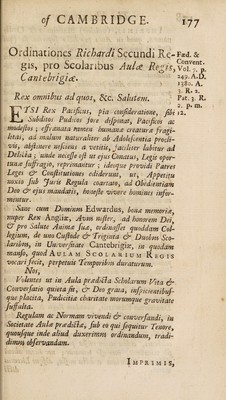 of CAMBRIDGE. 177
Ordinationes Richardi Secundi Re-
gis, pro Scolaribus Aulæ Regis,
Cantebrigiæ.
Fœd. &
Convent.
Vol. 7. p.
249. A.D.
1380. A.
3. R. 2.
Pat. 3. R.
2. p. m.
12.
Rex omnibus ad quos, &c. Salutem.
ETSI Rex Pacificus, pia consideratione, sibi
Subditos Pudicos fore disponat, Pacificos ac
modestos; effrænata tamen humanæ creaturæ fragi-
litas, ad malum naturaliter ab Adolescentia procli-
vis, abstinere nesciens a vetitis, faciliter labitur ad
Delicta; unde necesse est ut ejus Conatus, Legis opor-
tuno suffragio, reprimatur; ideoque provide Patres
Leges & Constitutiones ediderunt, ut, Appetitu
noxio sub Juris Regula coartato, ad Obedientiam
Deo & ejus mandatis, honeste vivere homines infor-
mentur.
Sane cum Dominus Edwardus, bonæ memoriæ,
nuper Rex Angliæ, Avus noster, ad honorem Dei,
& pro Salute Animæ suæ, ordinasset quoddam Col-
legium, de uno Custode & Triginta & Duobus Sco-
laribus, in Universitate Cantebrigiæ, in quodam
manso, quod AULAM SCOLARIUM REGIS
vocari fecit, perpetuis Temporibus duraturum.
Nos,
Volentes ut in Aula prædicta Scholarum Vita &
Conversatio quieta sit, & Deo grata, inspicientibus-
que placita, Pudicitiæ charitate morumque gravitate
suffulta.
Regulam ac Normam vivendi & conversandi, in
Societate Aulæ prædictæ, sub eo qui sequitur Tenore,
quousque inde aliud duxerimus ordinandum, tradi-
dimus observandam.
IMPRIMIS,